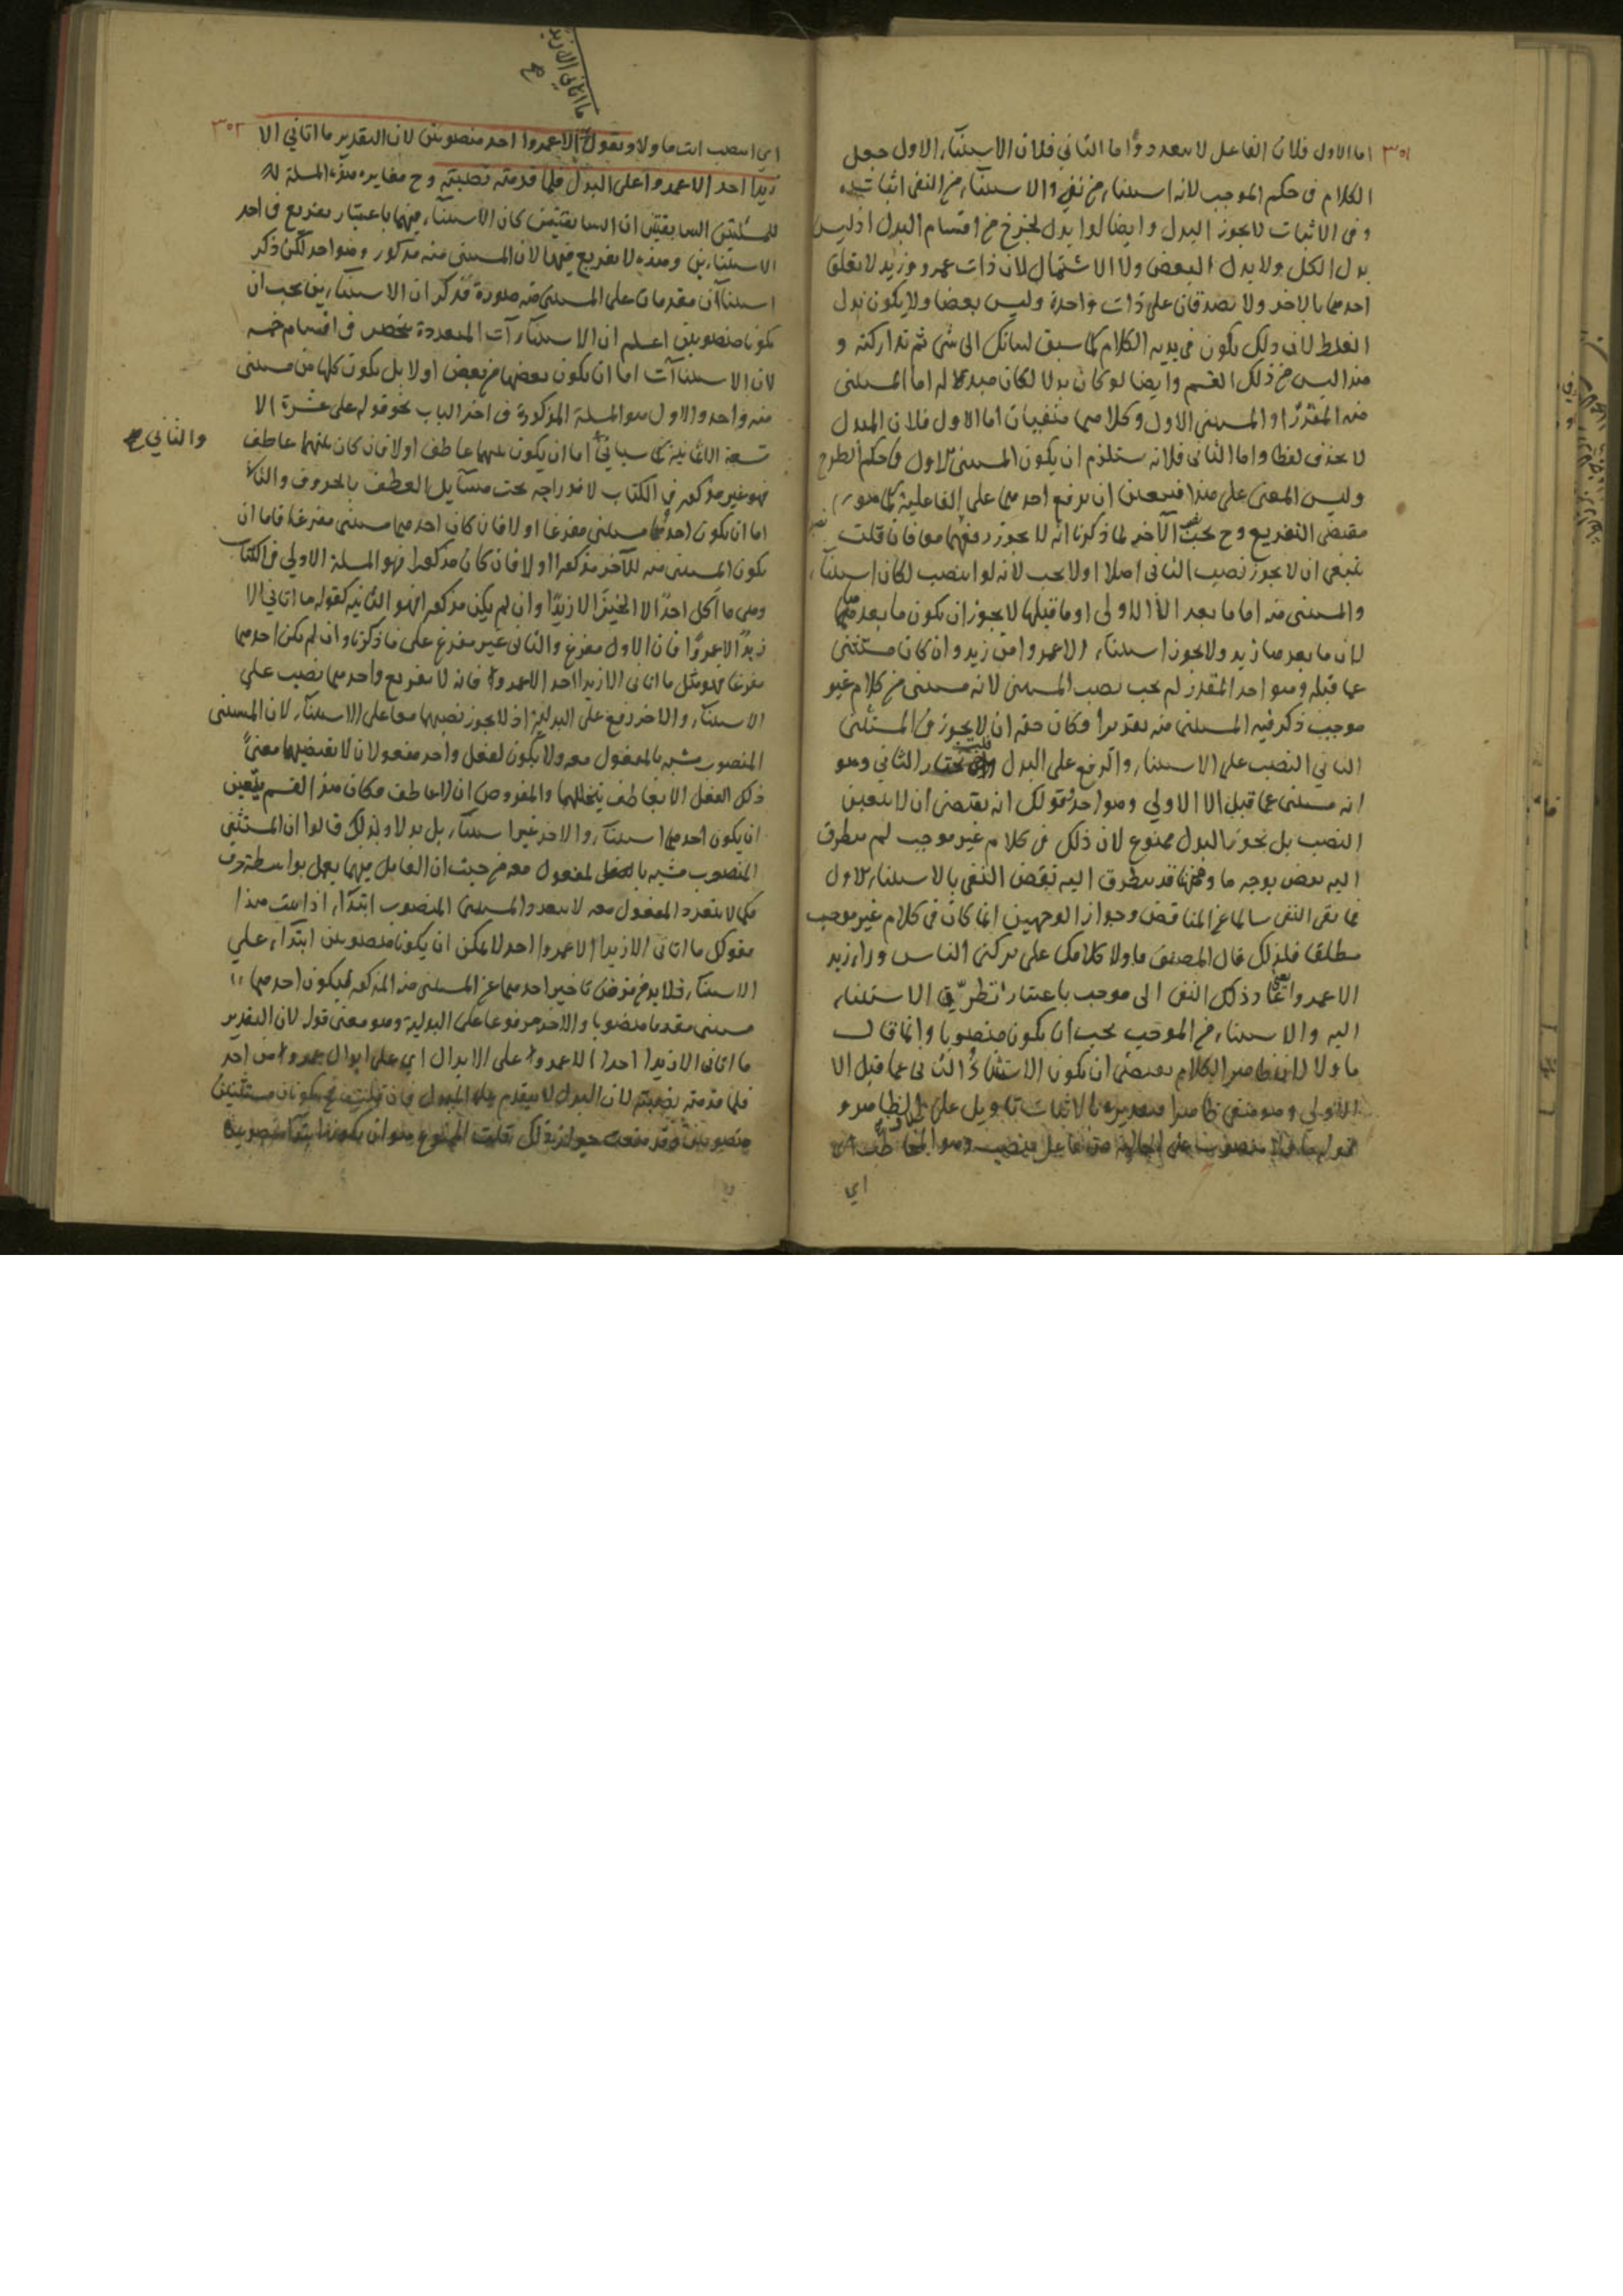 ٣٥١
اما الاول فلان الفاعل لا يتعدد واما الثاني فلان الاستثناء الاول جعل
الكلام في حكم الموجب لانه استثناء من نفي والاستثناء من النفي اثبات
وفي الاثبات لا يجوز البدل وايضا لو ابدل لخرج من اقسام البدل اذ ليس
بدل الكل ولا بدل البعض ولا الاشتمال لان ذات عمرو وزيد لا تعلق
احدهما بالاخر ولا تصدقان على ذات واحدة وليس بعضا ولا يكون بدل
الغلط لان ذلك يكون في بديه الكلام كما سبق لسانك الى شيء ثم تداركته و
هذا ليس من ذلك القسم وايضا لو كان بدلا لكان مبدلا له اما المستثنى
منه المقدر او المستثنى الاول وكلاهما منفيان اما الاول فلان المبدل
لا يحذف لفظا واما الثاني فلانه يستلزم ان يكون المستثنى الاول في حكم الطرح
وليس المعنى على هذا فيتعين ان يرفع احدهما على الفاعلية كما هو
مقتضى التفريغ وح يجب نصب الآخر لما ذكرنا انه لا يجوز رفعهما معا فان قلت
ينبغي ان لا يجوز نصب الثاني اصلا او لا يجب لانه لو انتصب لكان استثناء
والمستثنى منه اما ما بعد الا الاولى او ما قبلها لا يجوز ان يكون ما بعدها
لان ما بعدها زيد ولا يجوز استثناء الا عمروا من زيد وان كان مستثنى
عما قبله وهو احد المقدر لم يجب نصب المستثنى لانه مستثنى من كلام غير
موجب ذكر فيه المستثنى منه تقديرا وكان حقه ان يجوز في المستثنى
الثاني النصب على الاستثناء والرفع على البدل قلت نختار الثاني وهو
انه مستثنى عما قبل الا الاولى وهو احد وقولك انه يقتضي ان لا يتعين
النصب بل يجوز البدل ممنوع لان ذلك في كلام غير موجب لم يتطرق
اليه نقض بوجه ما وههنا قد يتطرق اليه نقض النفي بالاستثناء الاول
فما بقي النفي سالما عن المناقض وجواز الوجهين انما كان في كلام غير موجب
مطلقا فلذلك قال المصنف ما ولا كلامك على تركني الناس وراء زيد
الا عمروا عاد ذلك النفي الى موجب باعتبار تطرق الاستثناء
اليه والاستثناء من الموجب يجب ان يكون منصوبا وانما قال
ما ولا لان ظاهر الكلام يقتضي ان يكون الاستثناء الثاني عما قبل الا
الاولى وهو منفي ظاهرا وتقديره بالاثبات تاويل على خلاف الظاهر و
اي
ما اتاني الا زيد
صح
٣٥٢
اي انتصب انت ما ولا وتقول الا عمروا احد منصوبين لان التقدير ما اتاني الا
زيدا احد الا عمروا على البدل فلما قدمته نصبته وح مغايرة هذه المسئلة
للمسئلتين السابقتين ان السابقتين كان الاستثناء فيهما باعتبار تفريغ في احد
الاستثنائين وهذه لا تفريغ فيها لان المستثنى منه مذكور وهو احد لكن ذكر
استثناآن مقدمان على المستثنى منه صورة فذكر ان الاستثنائين يجب ان
يكونا منصوبين اعلم ان الاستثناآت المتعددة ينحصر في اقسام خمسة
لان الاستثناآت اما ان يكون بعضها من بعض اولا بل يكون كلها من مستثنى
منه واحد والاول هو المسئلة المذكورة في اخر الباب نحو قوله على عشرة الا
تسعة الا ثمانية كما سياتي اما ان يكون بينهما عاطف اولا فان كان بينهما عاطف
والثاني صح
فهو غير مذكور في الكتاب لاندراجه تحت مسائل العطف بالحروف والثاني
اما ان يكون احدهما مستثنى مفرغا اولا فان كان احدهما مستثنى مفرغا فاما ان
يكون المستثنى منه للآخر مذكورا اولا فان كان مذكورا فهو المسئلة الاولى في الكتاب
وهي ما اكل احد الا الخبز الا زيدا وان لم يكن مذكورا فهو الثانية كقوله ما اتاني الا
زيد الا عمروا فان الاول مفرغ والثاني غير مفرغ على ما ذكرنا وان لم يكن احدهما
مفرغا فهو مثل ما اتاني الا زيدا احد الا عمرو فانه لا تفريغ واحدهما نصب على
الاستثناء والاخر رفع على البدلية اذ لا يجوز نصبهما معا على الاستثناء لان المستثنى
المنصوب مشبه بالمفعول معه ولا يكون لفعل واحد مفعولان لا يقتضيهما معنى
ذلك الفعل الا بعاطف يتخللهما والمفروض ان لا عاطف فكان هذا القسم يتعين
ان يكون احدهما استثناء والاخر غير استثناء بل بدلا ولذلك قالوا ان المستثنى
المنصوب مشبه بالمفعول معه من حيث ان العامل فيهما يعمل بواسطة حرف
فكما لا يتعدد المفعول معه لا يتعدد المستثنى المنصوب ابتداء اذا ثبت هذا
فقولك ما اتاني الا زيدا الا عمروا احد لا يمكن ان يكونا منصوبين ابتداء على
الاستثناء فلا بد من فرض تاخير احدهما عن المستثنى منه المذكور فيكون احدهما
مستثنى مقدما منصوبا والاخر مرفوعا على البدلية وهو معنى قوله لان التقدير
ما اتاني الا زيدا احد الا عمرو على الابدال اي على ابدال عمرو من احد
فلما قدمته نصبته لان البدل لا يتقدم على المبدل فان قلت فح يكونان مستثنيين
منصوبين وقد منعت جواز ذلك قلت الممنوع هو ان يكونا ابتداء منصوبين